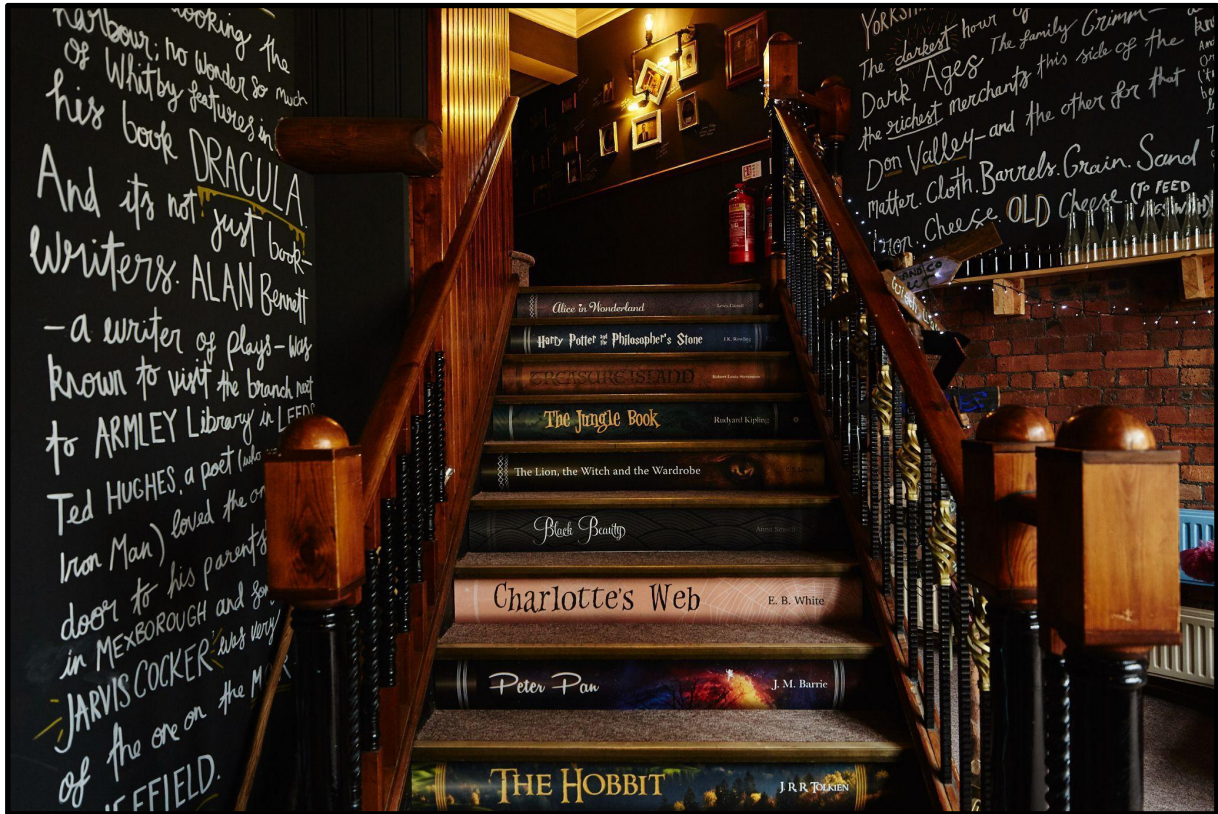 looking the
harbour; no wonder so much
of Whitby features in
his book DRACULA
And it's not just book-
writers. ALAN Bennett
- a writer of plays - was
known to visit the branch next
to ARMLEY Library in LEEDS
Ted HUGHES, a poet (who
Iron Man) loved the
door to his parents
in MEXBOROUGH and
JARVIS COCKER was very
of the one on the
Alice in Wonderland Lewis Carroll
Harry Potter and the Philosopher's Stone J.K. Rowling
TREASURE ISLAND Robert Louis Stevenson
The Jungle Book Rudyard Kipling
The Lion, the Witch and the Wardrobe
Black Beauty Anna Sewell
Charlotte's Web E. B. White
Peter Pan J. M. Barrie
THE HOBBIT J R R TOLKIEN
The darkest hour of
Dark Ages The family Grimm -
the richest merchants this side of the
Don Valley - and the other for that
matter. Cloth. Barrels. Grain. Sand
Iron. Cheese. OLD Cheese (TO FEED